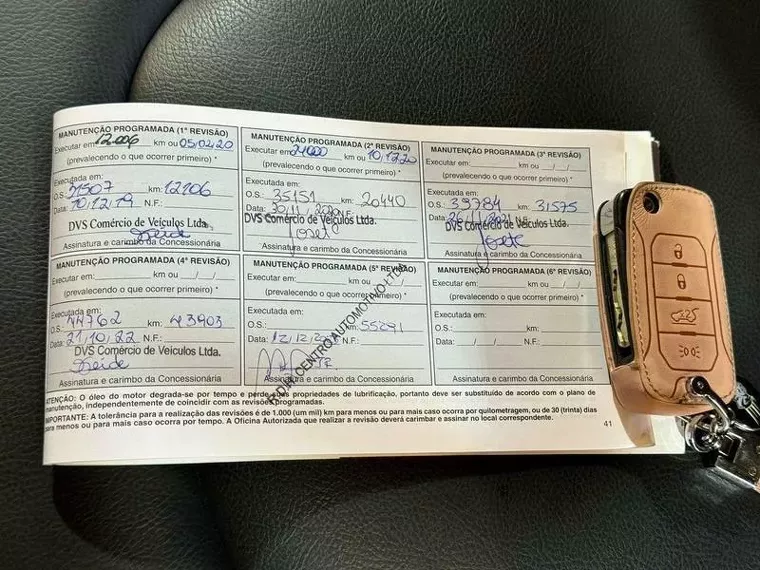 MANUTENÇÃO PROGRAMADA (1ª REVISÃO)
Executar em 12.006 km ou 05/02/20
(prevalecendo o que ocorrer primeiro) *
Executada em:
O.S.: 31507 km: 12106
Data: 10/12/19 N.F.:
DVS Comércio de Veículos Ltda.
Assinatura e carimbo da Concessionária
MANUTENÇÃO PROGRAMADA (2ª REVISÃO)
Executar em 24000 km ou 10/12/20
(prevalecendo o que ocorrer primeiro) *
Executada em:
O.S.: 35151 km: 20440
Data: 20/11/2020 N.F.:
DVS Comércio de Veículos Ltda.
Josete
Assinatura e carimbo da Concessionária
MANUTENÇÃO PROGRAMADA (3ª REVISÃO)
Executar em km ou / /
(prevalecendo o que ocorrer primeiro) *
Executada em:
O.S.: 39784 km: 31575
Data: 26/11/2021 N.F.:
DVS Comércio de Veículos Ltda.
Josete
Assinatura e carimbo da Concessionária
MANUTENÇÃO PROGRAMADA (4ª REVISÃO)
Executar em: km ou / /
(prevalecendo o que ocorrer primeiro) *
Executada em:
O.S.: 44762 km: 43903
Data: 21/10/22 N.F.:
DVS Comércio de Veículos Ltda.
Assinatura e carimbo da Concessionária
MANUTENÇÃO PROGRAMADA (5ª REVISÃO)
Executar em: km ou / /
(prevalecendo o que ocorrer primeiro) *
Executada em:
O.S.: km: 55291
Data: 12/12/ N.F.:
CENTRO AUTOMOTIVO LTDA
Assinatura e carimbo da Concessionária
MANUTENÇÃO PROGRAMADA (6ª REVISÃO)
Executar em: km ou / /
(prevalecendo o que ocorrer primeiro) *
Executada em:
O.S.: km:
Data: / / N.F.:
Assinatura e carimbo da Concessionária
ATENÇÃO: O óleo do motor degrada-se por tempo e perde suas propriedades de lubrificação, portanto deve ser substituído de acordo com o plano de
manutenção, independentemente de coincidir com as revisões programadas.
IMPORTANTE: A tolerância para a realização das revisões é de 1.000 (um mil) km para menos ou para mais caso ocorra por quilometragem, ou de 30 (trinta) dias
para menos ou para mais caso ocorra por tempo. A Oficina Autorizada que realizar a revisão deverá carimbar e assinar no local correspondente.
41